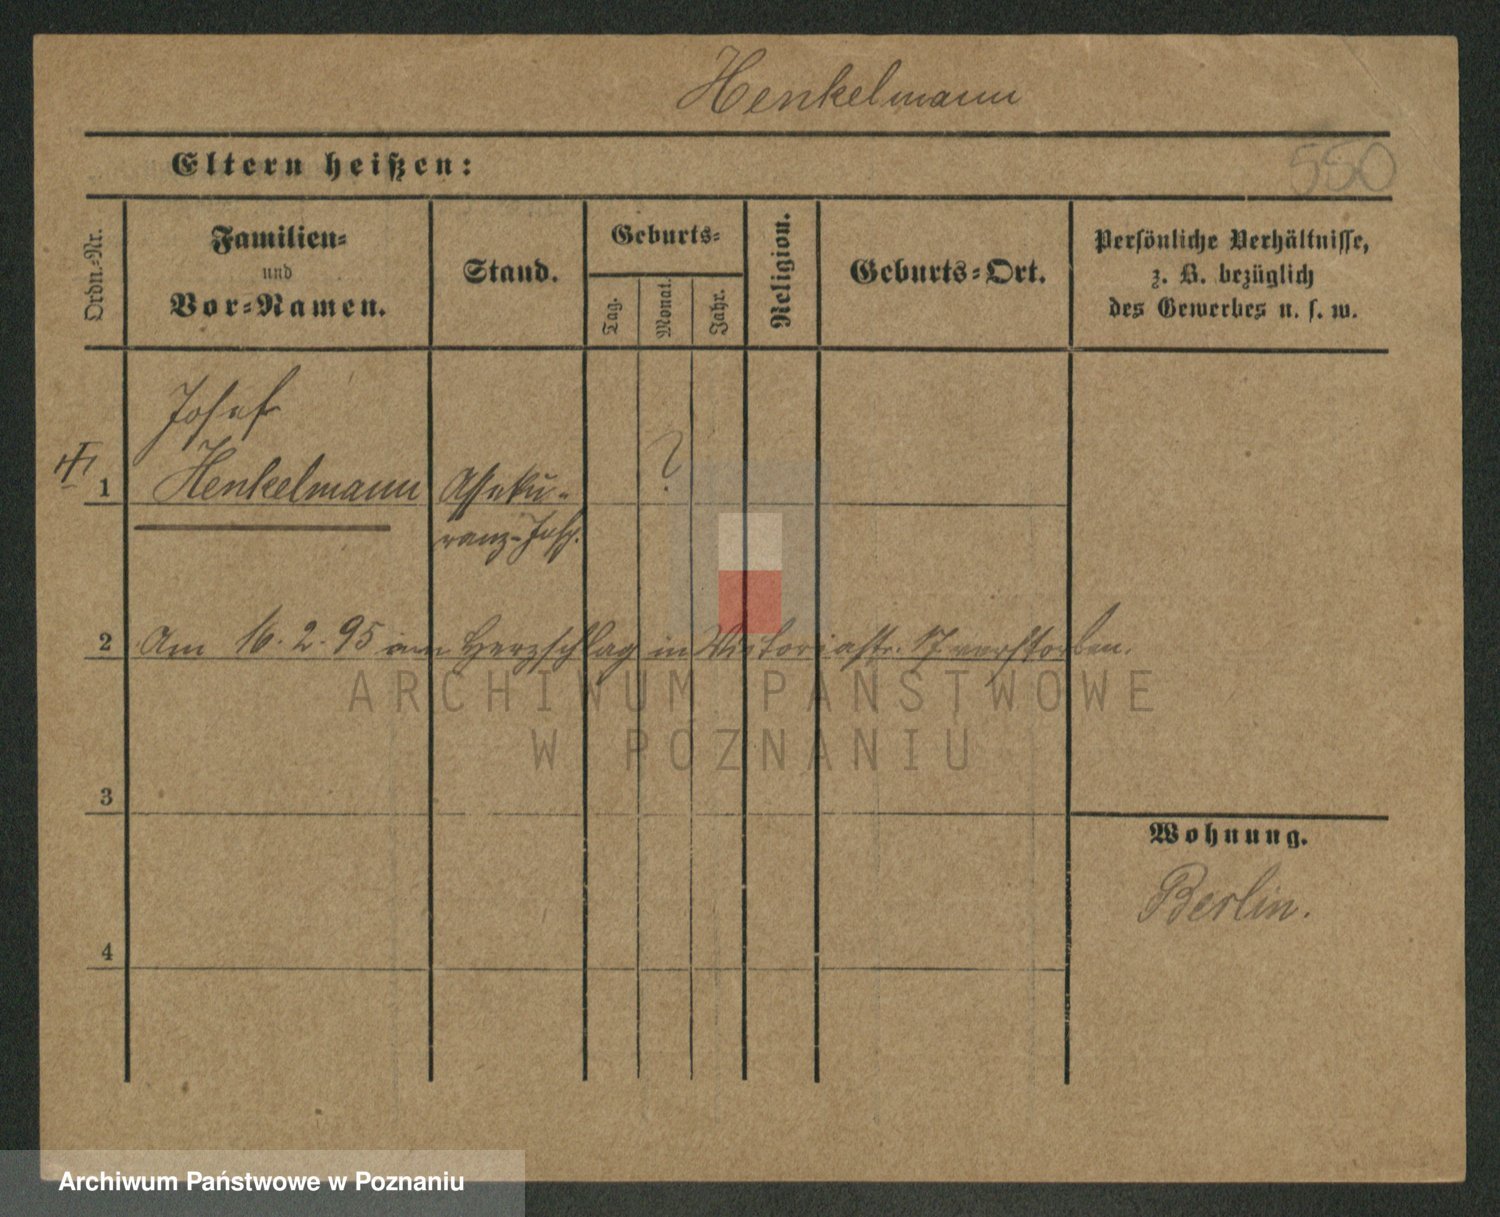 Henkelmann
Eltern heißen:
550
Ordn.-Nr.
Familien-
und
Vor-Namen.
Stand.
Geburts-
Tag.
Monat.
Jahr.
Religion.
Geburts-Ort.
Persönliche Verhältnisse,
z. B. bezüglich
des Gewerbes u. s. w.
Josef
1 Henkelmann Asseku- ?
ranz-Insp.
2 Am 16.2.95 am Herzschlag in Victoriastr. 17 verstorben.
ARCHIWUM PAŃSTWOWE
W POZNANIU
3
Wohnung.
Berlin.
4
Archiwum Państwowe w Poznaniu